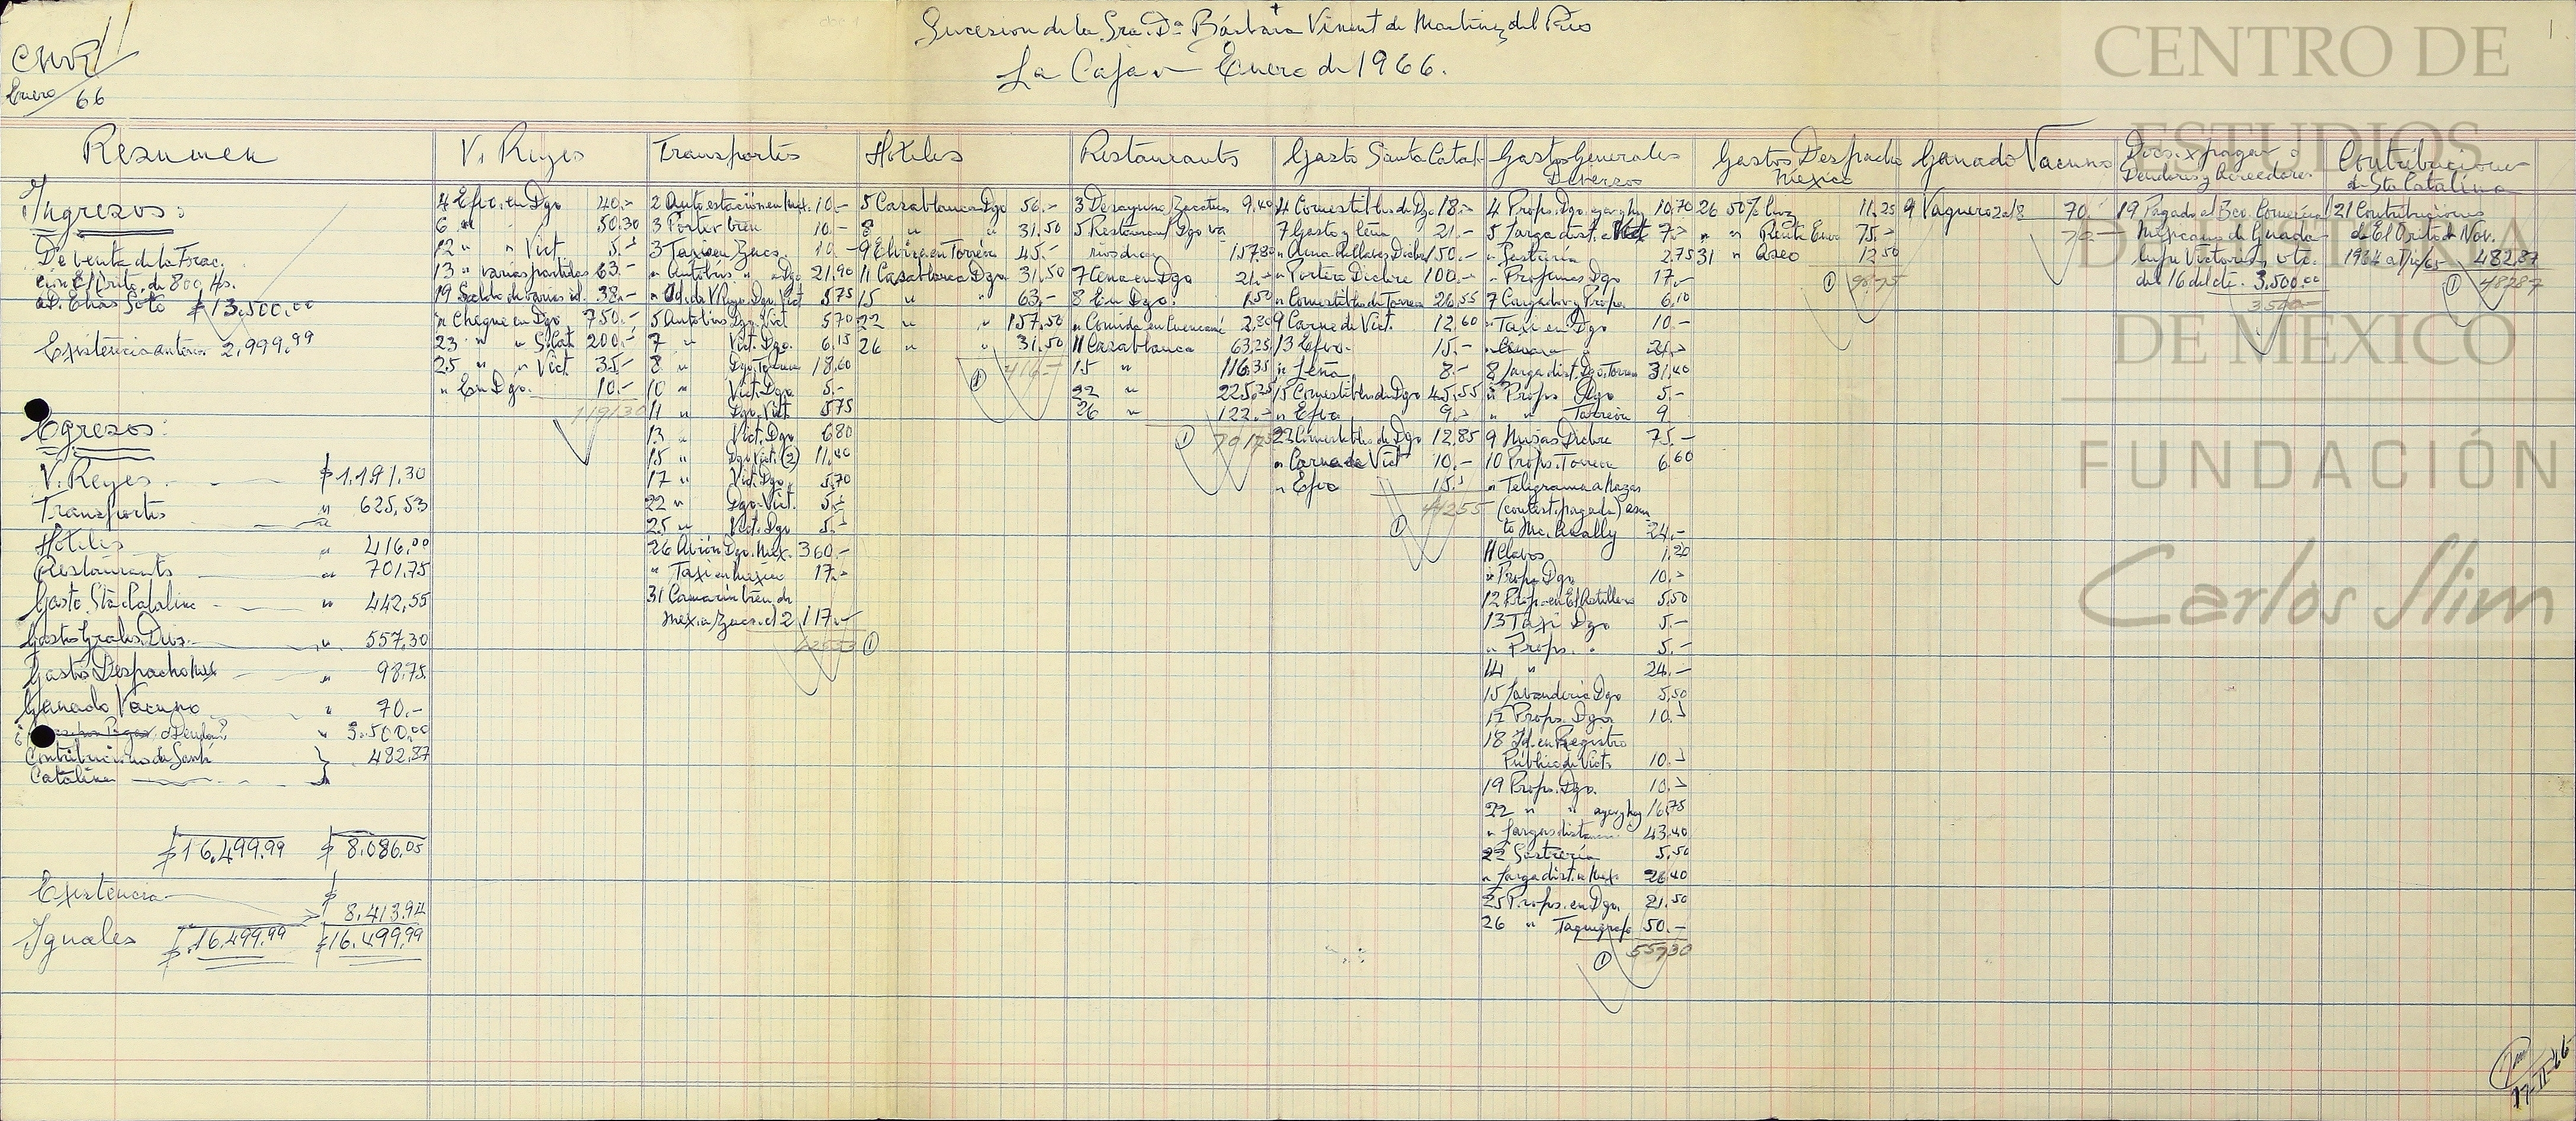 CMR
Enero 66
Sucesion de la Sra. Da. Bárbara Vinent de Martínez del Rio
La Caja Enero de 1966.
1
CENTRO DE
ESTUDIOS
DE HISTORIA
DE MEXICO
FUNDACIÓN
Carlos Slim
Resumen
Ingresos:
De venta de la Frac.
ción El Orito, de 800 Hs.
a D. Elias Soto $13,500.00
Existencia anterior 2,999.99
Egresos:
V. Reyes $1,191.30
Transportes " 625,53
Hoteles " 416,00
Restaurants " 701,75
Gasto Sta Catalina " 442,55
Gastos Grales. Divs. " 557,30
Gastos Despacho Mex " 98,75
Ganado Vacuno " 70.-
" 3.500,00
Contribuciones de Santa
Catalina 482,87
$16,499.99 $8,086,05
Existencia $
8,413.94
Iguales $16,499.99 $16,499,99
V. Reyes
4 Efvo. en Dgo 40.-
6 " " 50.30
12 " " Vict 5.-
13 " varias partidas 63.-
19 Saldo de varios id. 38.-
" Cheque en Dgo 750.-
23 " " S. Cat. 200.-
25 " " Vict 35.-
" En Dgo. 10.-
119130
Transportes
2 Auto estacion en Mex. 10.-
3 Porter tren 10.-
3 Taxi en Zacs. 10.-
" Autobus " a Dgo 21,90
" Id. de V. Reyes Dgo. Vict 5,75
5 Autobus Dgo. Vict 5,70
7 " Vict. Dgo. 6,15
8 " Dgo. Torreon 18,60
10 " Vict. Dgo. 5.-
11 " Dgo. Vict 5,75
13 " Vict. Dgo 6,80
15 " Dgo Vict. (2) 11,40
17 " Vict. Dgo. 5,70
22 " Dgo. Vict. 5.-
25 " Vict. Dgo 5.-
26 Avión Dgo. Mex. 360.-
" Taxi en México 17.-
31 Camarin tren de
Mex. a Zacs. el 2 117.-
62553 1
Hoteles
5 Casablanca Dgo 56.-
8 " " 31.50
9 Elvira en Torreón 45.-
11 Casablanca Dgo 31,50
15 " " 63.-
22 " " 157,50
26 " " 31.50
1 416.-
Restaurants
3 Desayuno Zacatecas 9,40
5 Restaurant Dgo va
rios dias 157,80
7 Cena en Dgo 21.-
8 En Dgo. 1,50
" Comida en Cuencamé 2,30
11 Casablanca 63,25
15 " 116,35
22 " 225,25
26 " 122.-
1 70175
Gasto Santa Catal.
4 Comestibles de Dgo 18.-
7 Gasto y leña 21.-
" Ama de llaves Dicbre 150.-
" Portero Dicbre 100.-
" Comestibles de Torreon 26,55
9 Carne de Vict. 12,60
13 Efvo. 15.-
" Leña 8.-
15 Comestibles de Dgo 45,55
" Efvo 9.-
23 Comestibles de Dgo 12,85
" Carne de Vict 10.-
" Efvo 15.-
44255
1
Gastos Generales
Diversos
4 Props. Dgo. ayer y hoy 10,70
5 Larga dist. a Vict 7.-
" 2,75
" Dgo 17.-
7 Cargador y Props. 6,10
" Taxi en Dgo 10.-
" 21.-
8 Larga dist. Dgo. Torreon 31,40
" Props Dgo 5.-
" " Torreón 9
9 Misas Dicbre 75.-
10 Props. Torreon 6,60
" Telegrama a Mazas
(contest. pagada) asun
to Mc. Anally 24.-
11 Clavos 1,20
" Props. Dgo. 10.-
12 Props. en El Astillero 5,50
13 Taxi Dgo 5.-
" Props. " 5.-
14 " 24.-
15 Lavanderia Dgo 5,50
17 Props. Dgo 10.-
18 Id. en Registro
Público de Vict. 10.-
19 Props. Dgo. 10.-
22 " " ayer y hoy 16,75
" Largas distancias 43,40
22 Sastrería 5,50
" Larga dist. a Mex. 26,40
25 Props. en Dgo. 21,50
26 " Taquigrafo 50.-
1 55730
Gastos Despacho
Mexico
26 50% Luz 11,25
" " Renta Enero 75.-
31 " Aseo 12,50
1 98,75
Ganado Vacuno
9 Vaquero 2 al 8 70.-
70.-
Docs. x pagar o
Deudores y Acreedores
19 Pagado al Bco. Comercial
Mexicano de Guada-
lupe Victoria, vto.
del 16 del cte. 3,500.00
3,500.-
Contribuciones
de Sta Catalina
21 Contribuciones
de El Orito de Nov.
482,87
1 48287
17-II-66